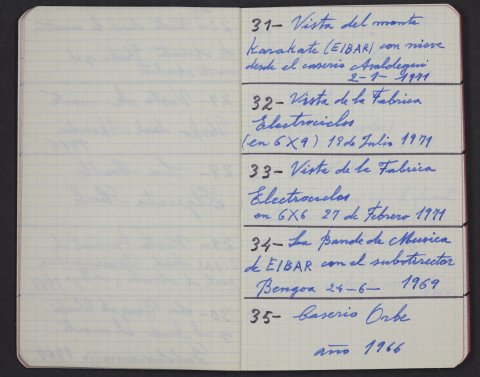 31- Vista del monte
Karakate (EIBAR) con nieve
desde el caserio Asaldegui
2-1-1971
32- Vista de la Fabrica
Electrociclos
(en 6X9) 18 de Julio 1971
33- Vista de la Fabrica
Electrociclos
en 6X6 27 de Febrero 1971
34- La Banda de Musica
de EIBAR con el subdirector
Bengoa 24-6- 1969
35- Caserio Orbe
año 1966